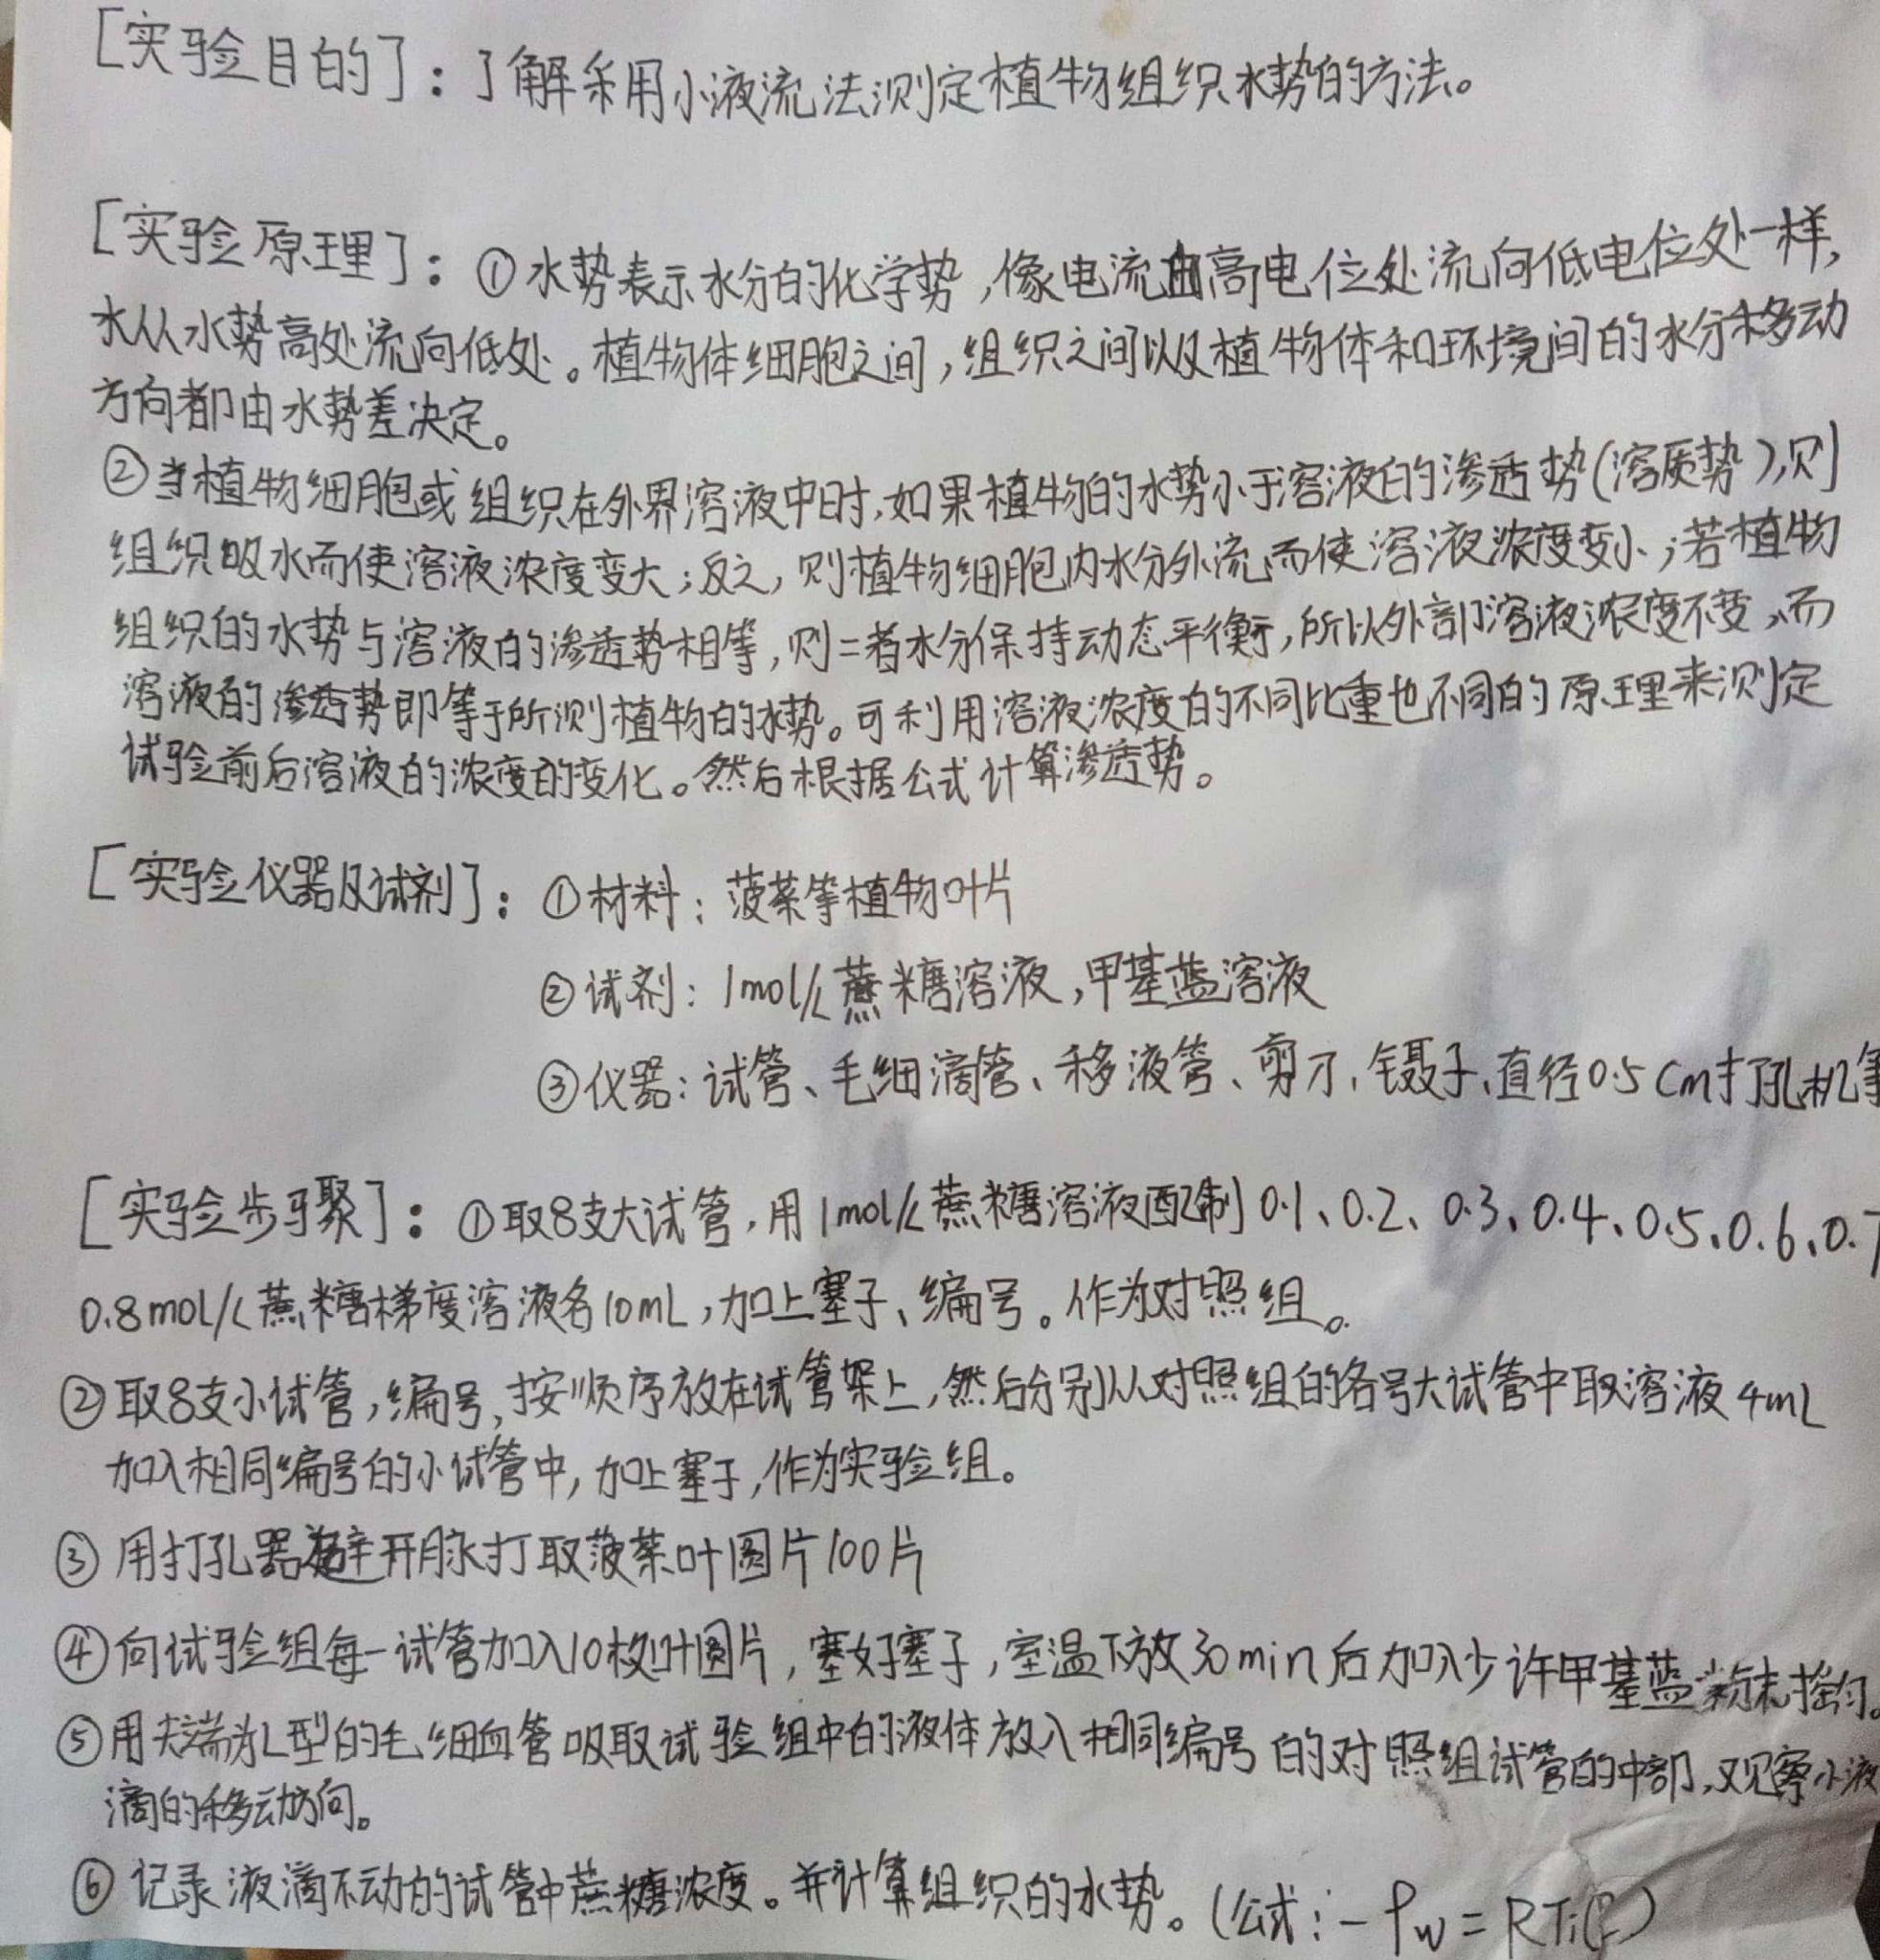 [实验目的]：了解采用小液流法测定植物组织水势的方法。
[实验原理]：①水势表示水分的化学势，像电流由高电位处流向低电位处一样，
水从水势高处流向低处。植物体细胞之间，组织之间以及植物体和环境间的水分移动
方向都由水势差决定。
②当植物细胞或组织在外界溶液中时，如果植物的水势小于溶液的渗透势(溶质势)，则
组织吸水而使溶液浓度变大；反之，则植物细胞内水分外流而使溶液浓度变小；若植物
组织的水势与溶液的渗透势相等，则二者水分保持动态平衡，所以外部溶液浓度不变，而
溶液的渗透势即等于所测植物的水势。可利用溶液浓度的不同比重也不同的原理来测定
试验前后溶液的浓度的变化。然后根据公式计算渗透势。
[实验仪器及试剂]：①材料：菠菜等植物叶片
②试剂：1mol/L蔗糖溶液，甲基蓝溶液
③仪器：试管、毛细滴管、移液管、剪刀、镊子、直径0.5cm打孔机等
[实验步骤]：①取8支大试管，用1mol/L蔗糖溶液配制0.1、0.2、0.3、0.4、0.5、0.6、0.7
0.8mol/L蔗糖梯度溶液各10mL，加上塞子、编号。作为对照组。
②取8支小试管，编号，按顺序放在试管架上，然后分别从对照组的各号大试管中取溶液4mL
加入相同编号的小试管中，加上塞子，作为实验组。
③用打孔器避开脉打取菠菜叶圆片100片
④向试验组每一试管加入10枚叶圆片，塞好塞子，室温下放30min后加入少许甲基蓝粉末摇匀。
⑤用尖端为L型的毛细血管吸取试验组中的液体放入相同编号的对照组试管的中部，观察小液
滴的移动方向。
⑥记录液滴不动的试管中蔗糖浓度。并计算组织的水势。(公式：-Pw=RTiC)